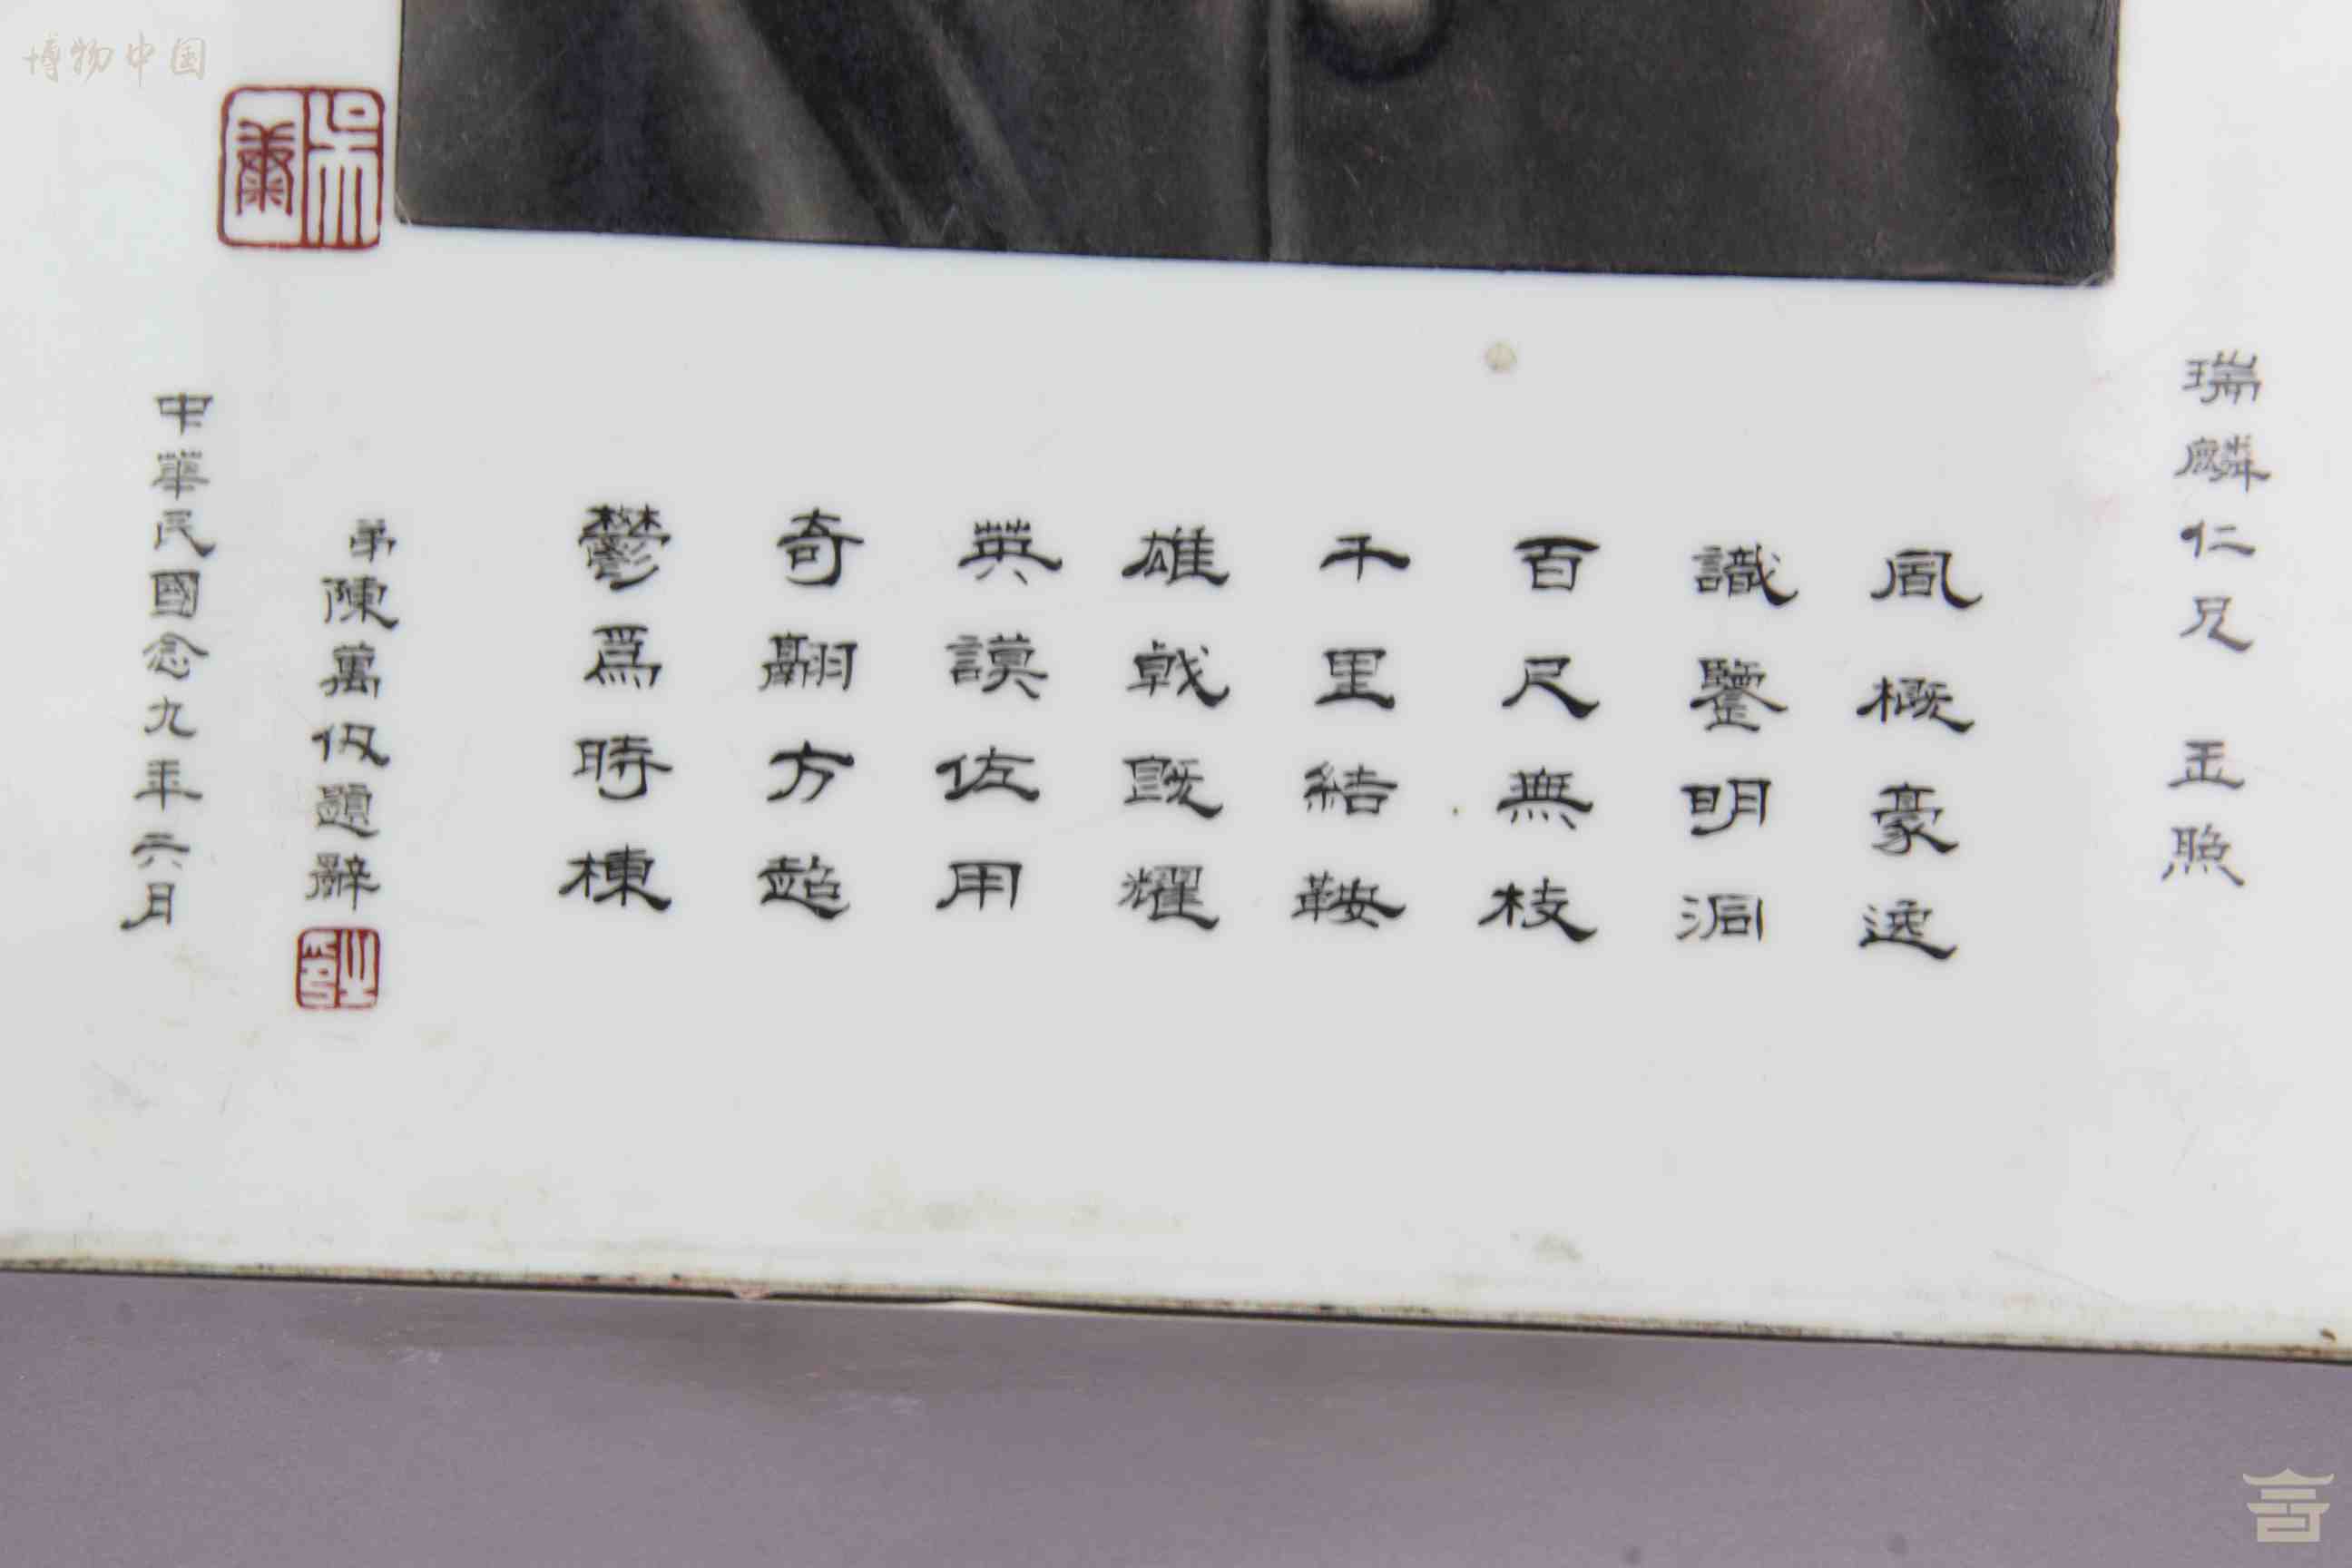 博物中国
瑞麟仁兄 玉照
風概豪逸
識鑒明洞
百尺無枝
千里結鞍
雄戟既耀
英謨佐用
奇翮方超
鬱爲時棟
弟陳萬仞題辭
之印
中華民國念九年六月
吳康